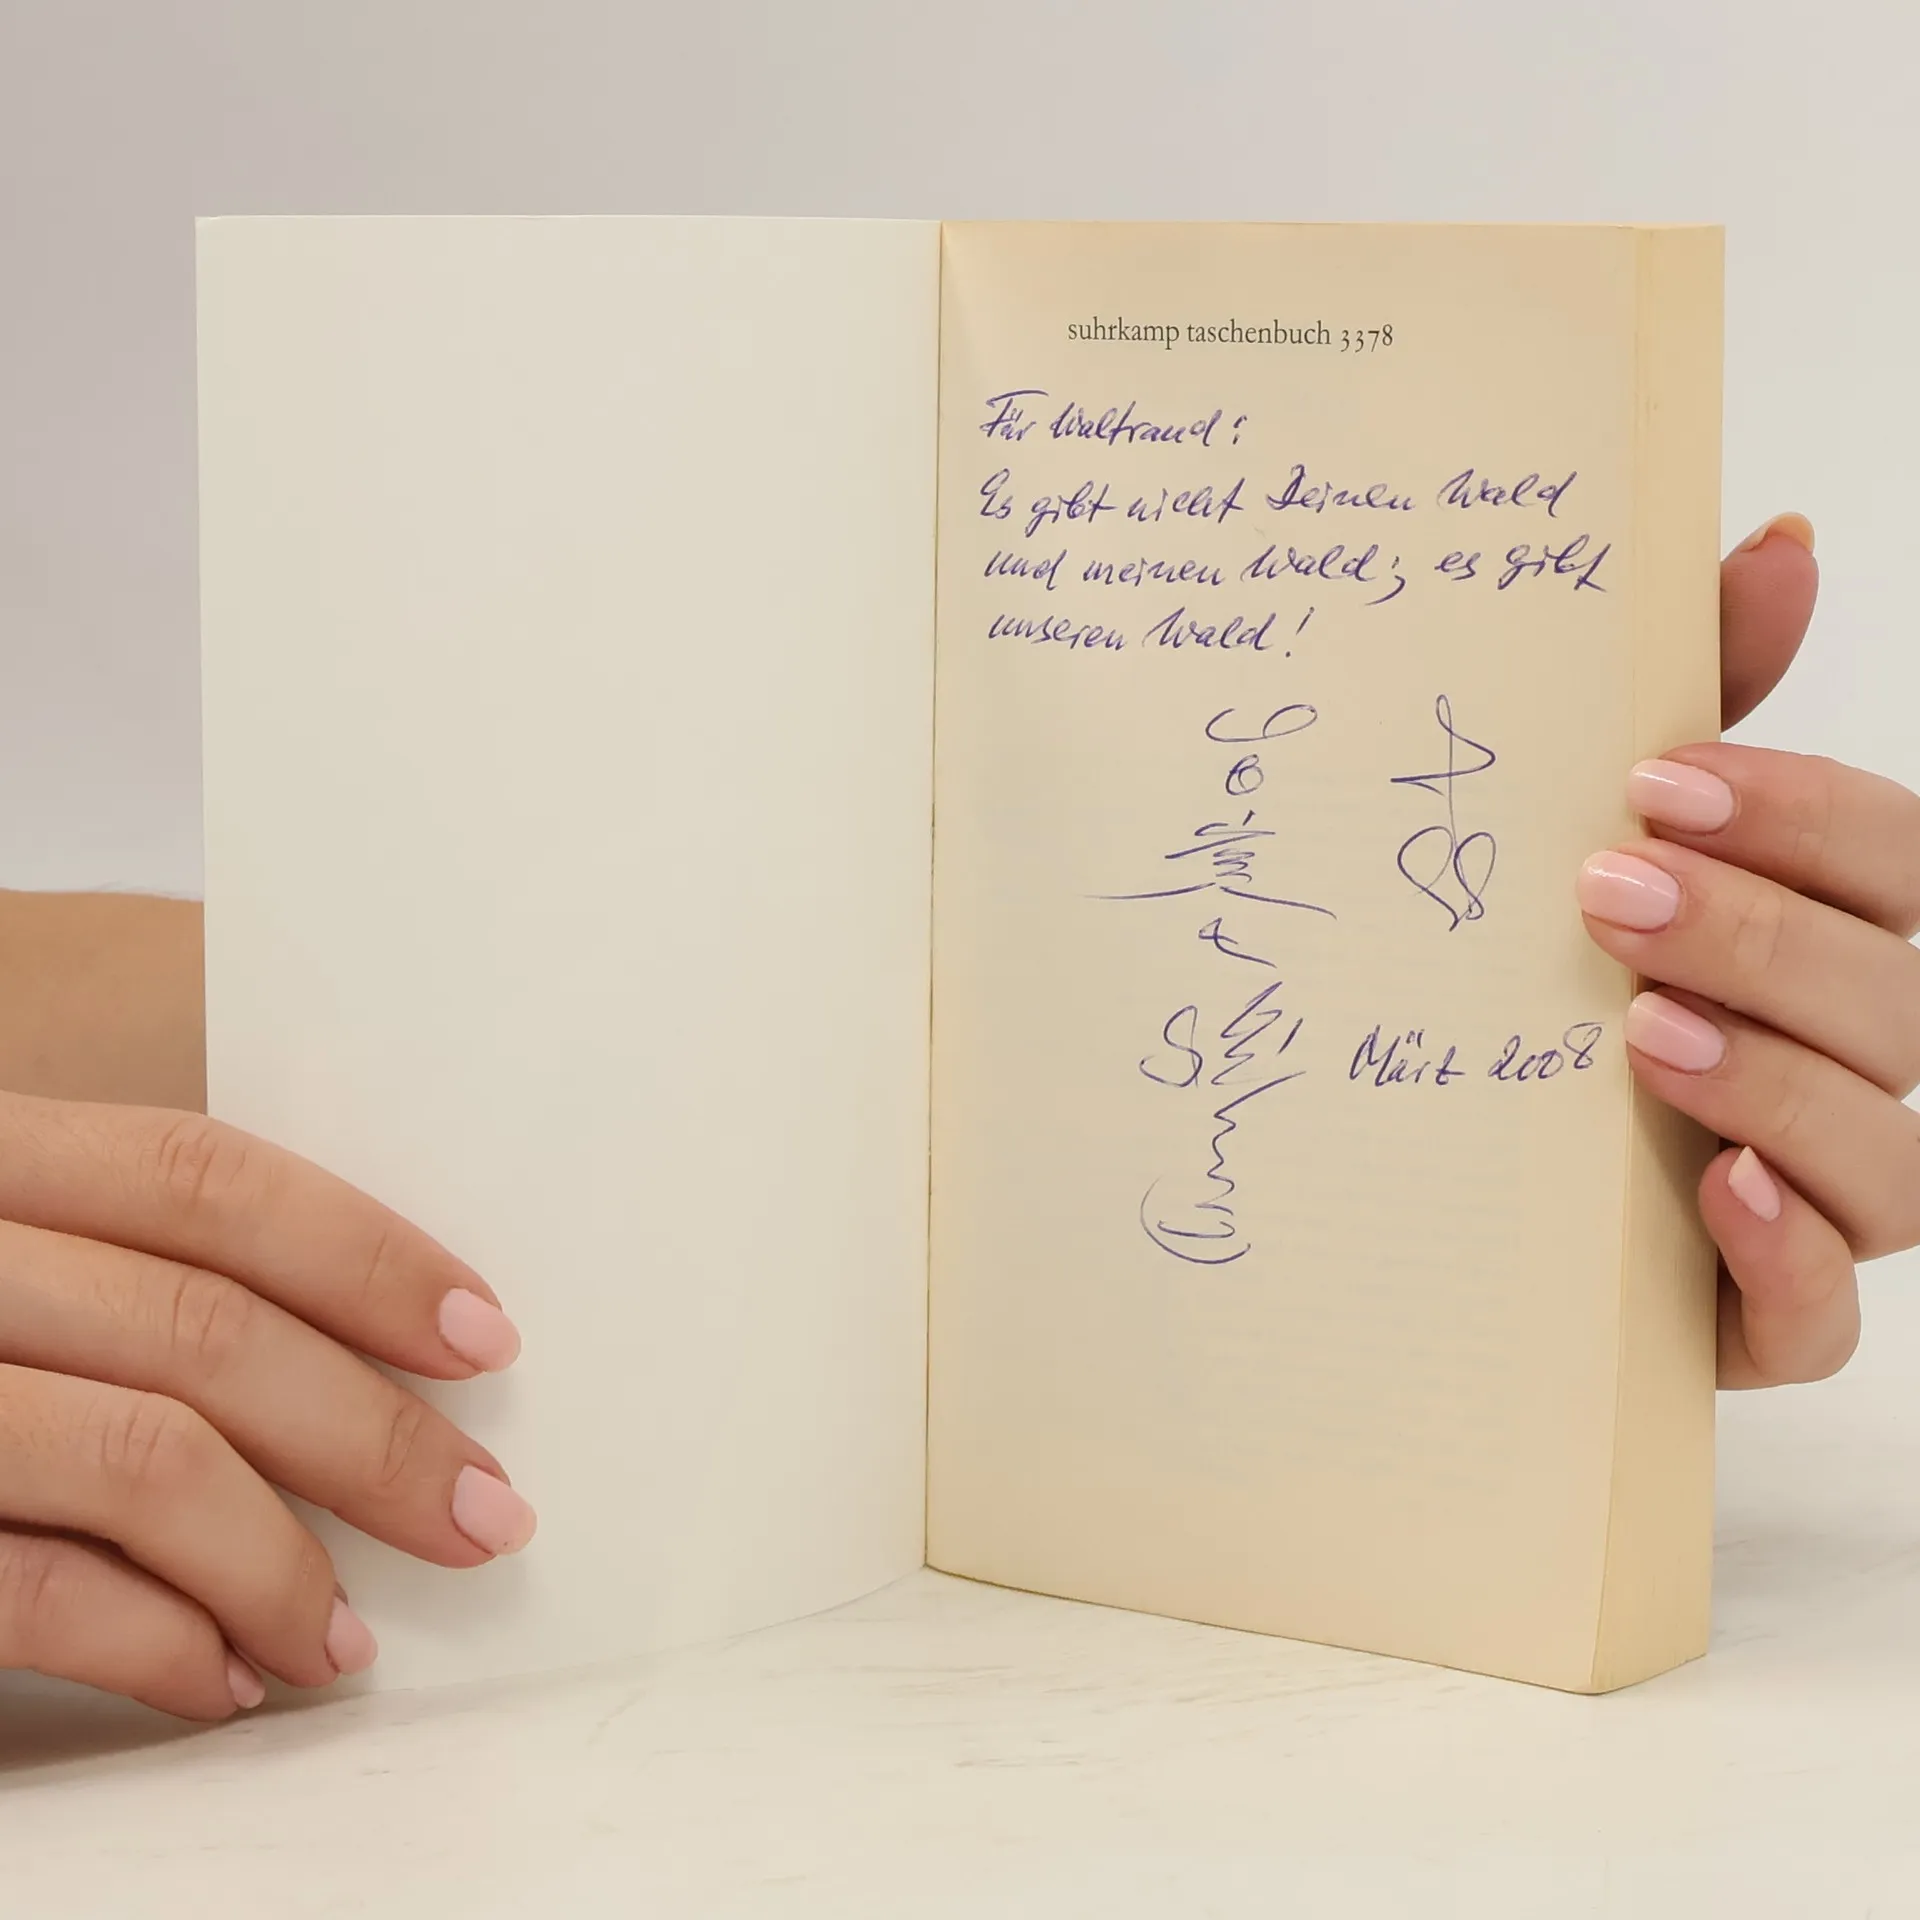 suhrkamp taschenbuch 3378
Für Waltraud:
Es gibt nicht Deinen Wald
und meinen Wald; es gibt
unseren Wald!
März 2008